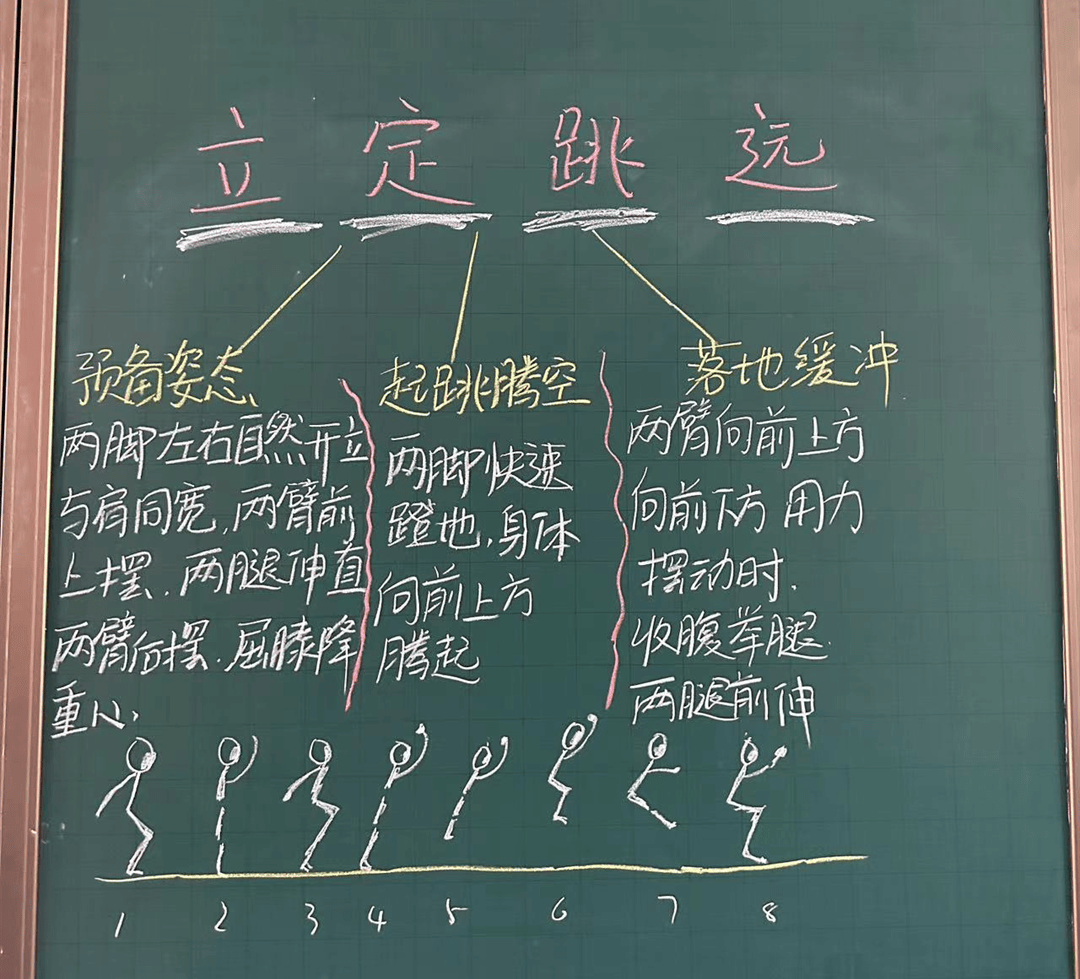 立定跳远
预备姿态
两脚左右自然开立
与肩同宽,两臂前
上摆.两腿伸直
两臂后摆.屈膝降
重心.
起跳腾空
两脚快速
蹬地,身体
向前上方
腾起
落地缓冲
两臂向前上方
向前下方用力
摆动时.
收腹举腿.
两腿前伸
1 2 3 4 5 6 7 8